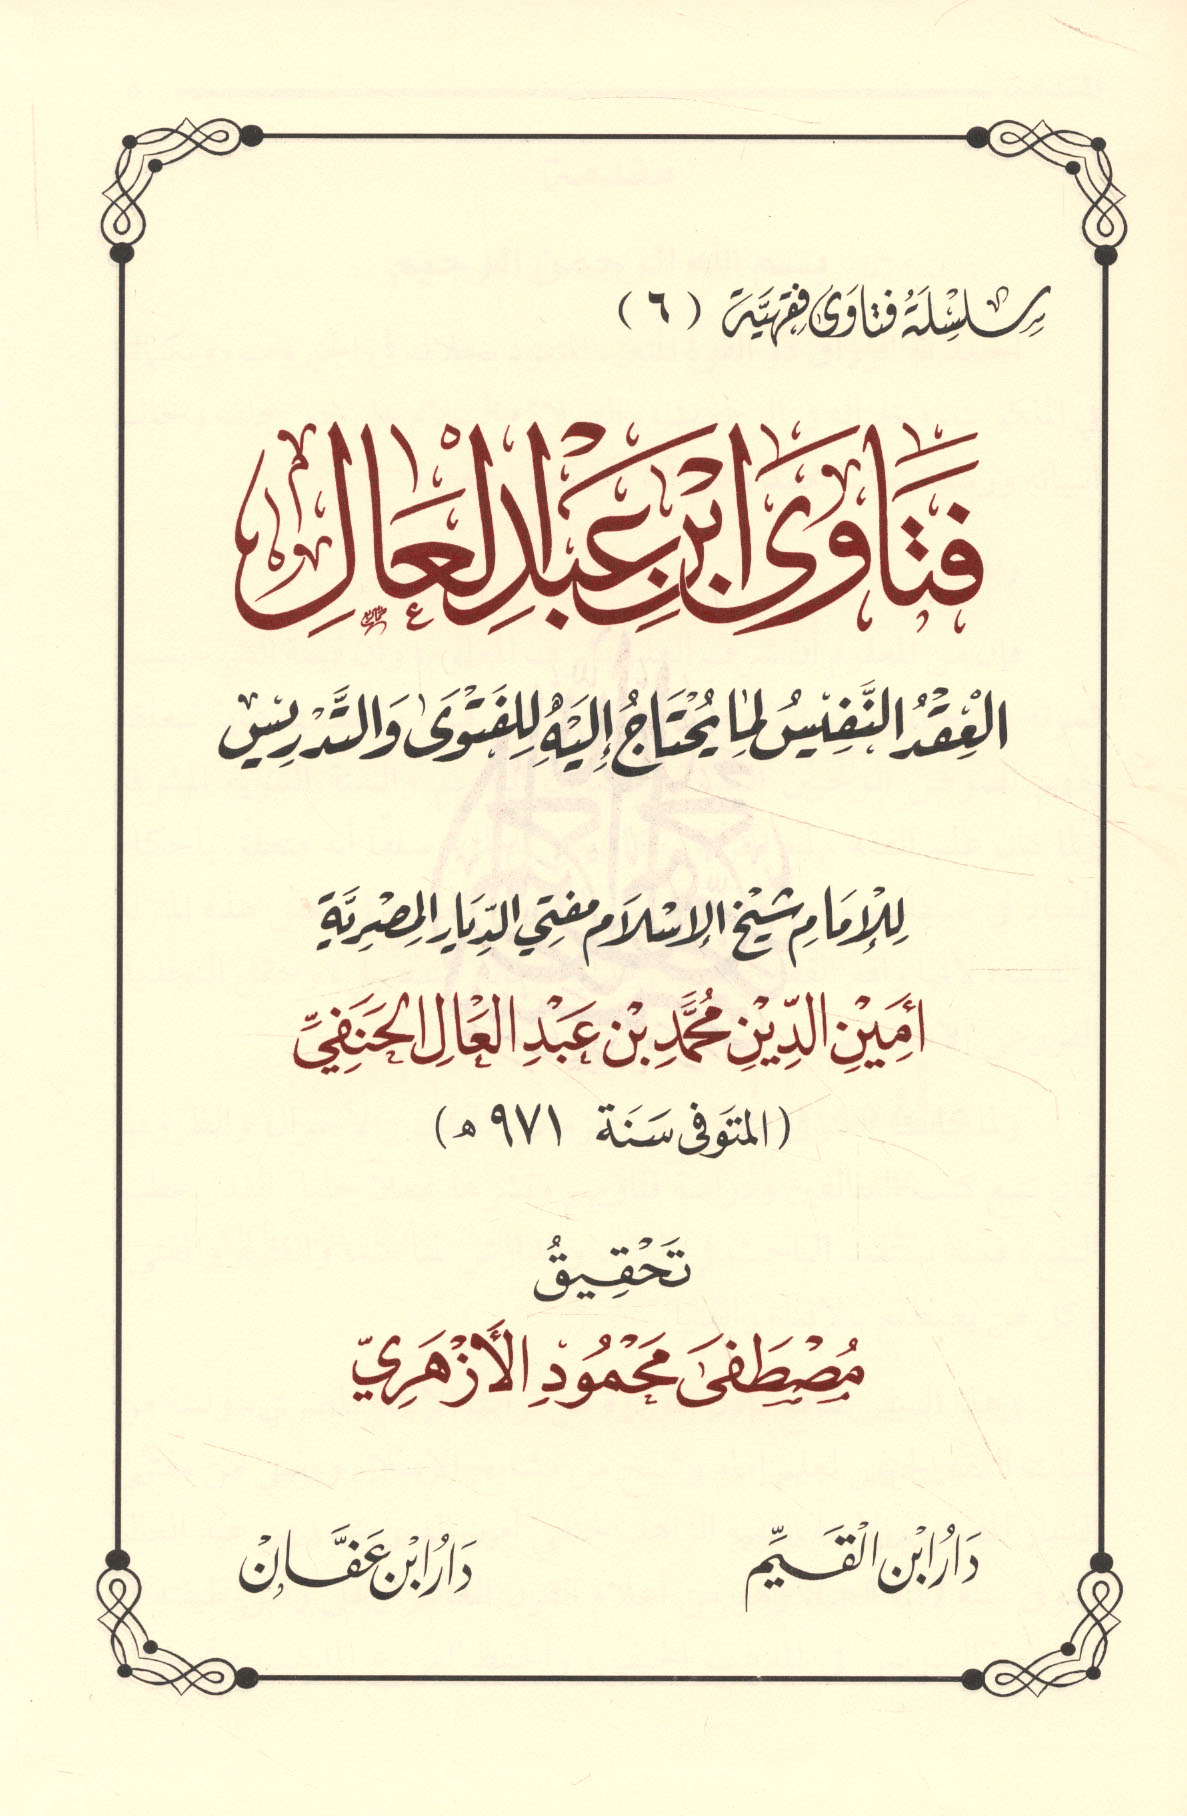 سِلْسِلَةُ فَتَاوَى فِقْهِيَّة (٦)
فَتَاوَى ابْنِ عَبْدِ العَالِ
العِقْدُ النَّفِيْسُ لِمَا يُحْتَاجُ إِلَيْهِ لِلفَتْوَى وَالتَّدْرِيسِ
لِلْإِمَامِ شَيْخِ الإِسْلَامِ مفتِي الدِّيَارِ المِصْرِيَّةِ
أَمِيْنِ الدِّيْنِ مُحَمَّدِ بْنِ عَبْدِ العَالِ الحَنَفِيِّ
(المتَوَفى سَنَة ٩٧١ هـ)
تَحْقِيقُ
مُصْطَفَى مَحْمُودِ الأَزْهَرِيّ
دَارُ ابْنِ القَيِّم
دَارُ ابْنِ عَفَّان